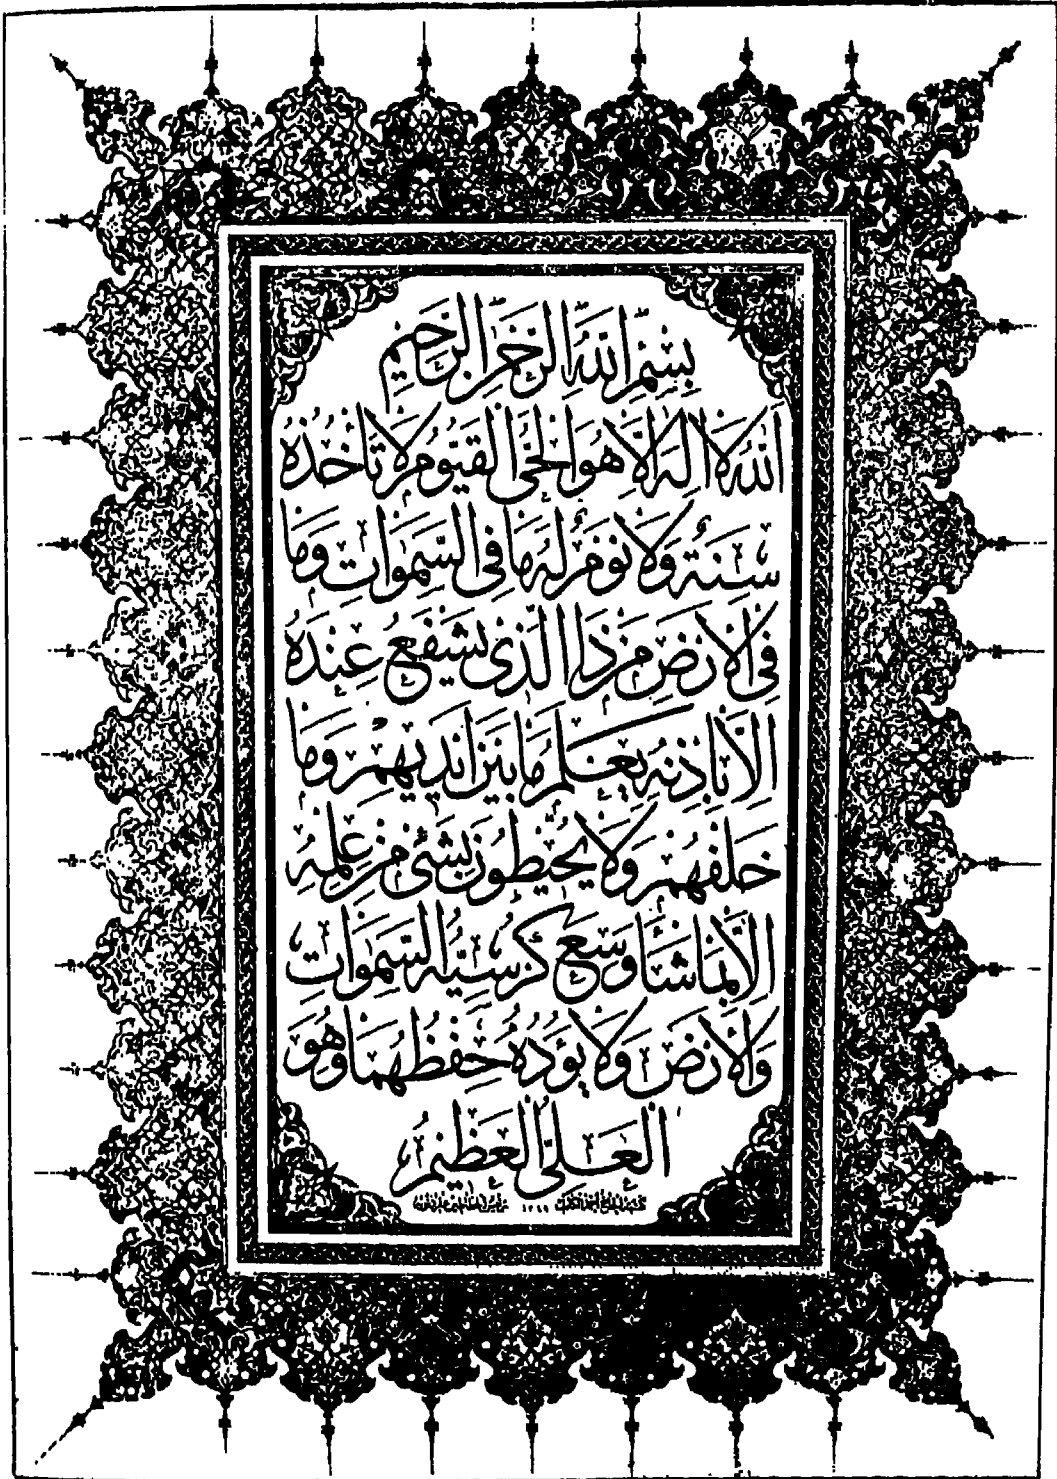 بِسْمِ اللّٰهِ الرَّحْمٰنِ الرَّحِيمِ
اَللّٰهُ لَا اِلٰهَ اِلَّا هُوَ الْحَيُّ الْقَيُّومُ لَا تَأْخُذُهُ
سِنَةٌ وَلَا نَوْمٌ لَهُ مَا فِي السَّمٰوَاتِ وَمَا
فِي الْاَرْضِ مَنْ ذَا الَّذِي يَشْفَعُ عِنْدَهُ
اِلَّا بِاِذْنِهِ يَعْلَمُ مَا بَيْنَ اَيْدِيهِمْ وَمَا
خَلْفَهُمْ وَلَا يُحِيطُونَ بِشَيْءٍ مِنْ عِلْمِهِ
اِلَّا بِمَا شَاءَ وَسِعَ كُرْسِيُّهُ السَّمٰوَاتِ
وَالْاَرْضَ وَلَا يَؤُدُهُ حِفْظُهُمَا وَهُوَ
الْعَلِيُّ الْعَظِيمُ